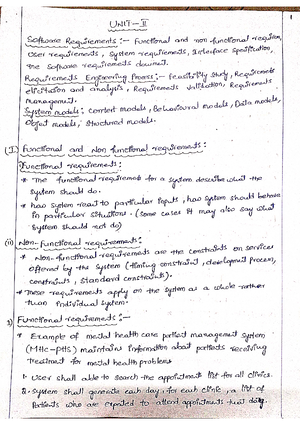 UNIT-II
Software Requirements:- Functional and non functional requirem,
User requirements, System requirements, Interface Specification,
the Software requirements document.
Requirements Engineering Process:- Feasibility Study, Requirements
elicitation and analysis, Requirements Validation, Requirements
management.
System models: Context models, Behavioural models, Data models,
Object models, Structured models.
(I) Functional and Non functional requirements:
Functional requirements:
* The functional requirements for a system describe what the
system should do.
* how system react to particular inputs, how system should behave
in particular situations. (some cases it may also say what
system should not do)
(ii) Non-functional requirements:
* Non-functional requirements are the constraints on services
offered by the system (timing constraint, development process,
constraints, standard constraints).
* These requirements apply on the system as a whole rather
than individual system.
1) Functional requirements:-
* Example of mental health care patient management system
(MHC-PMS) maintains information about patients receiving
treatment for mental health problems
1. User shall able to search the appointment list for all clinics.
2. System shall generate each day, for each clinic, a list of
Patients who are expected to attend appointments that day.